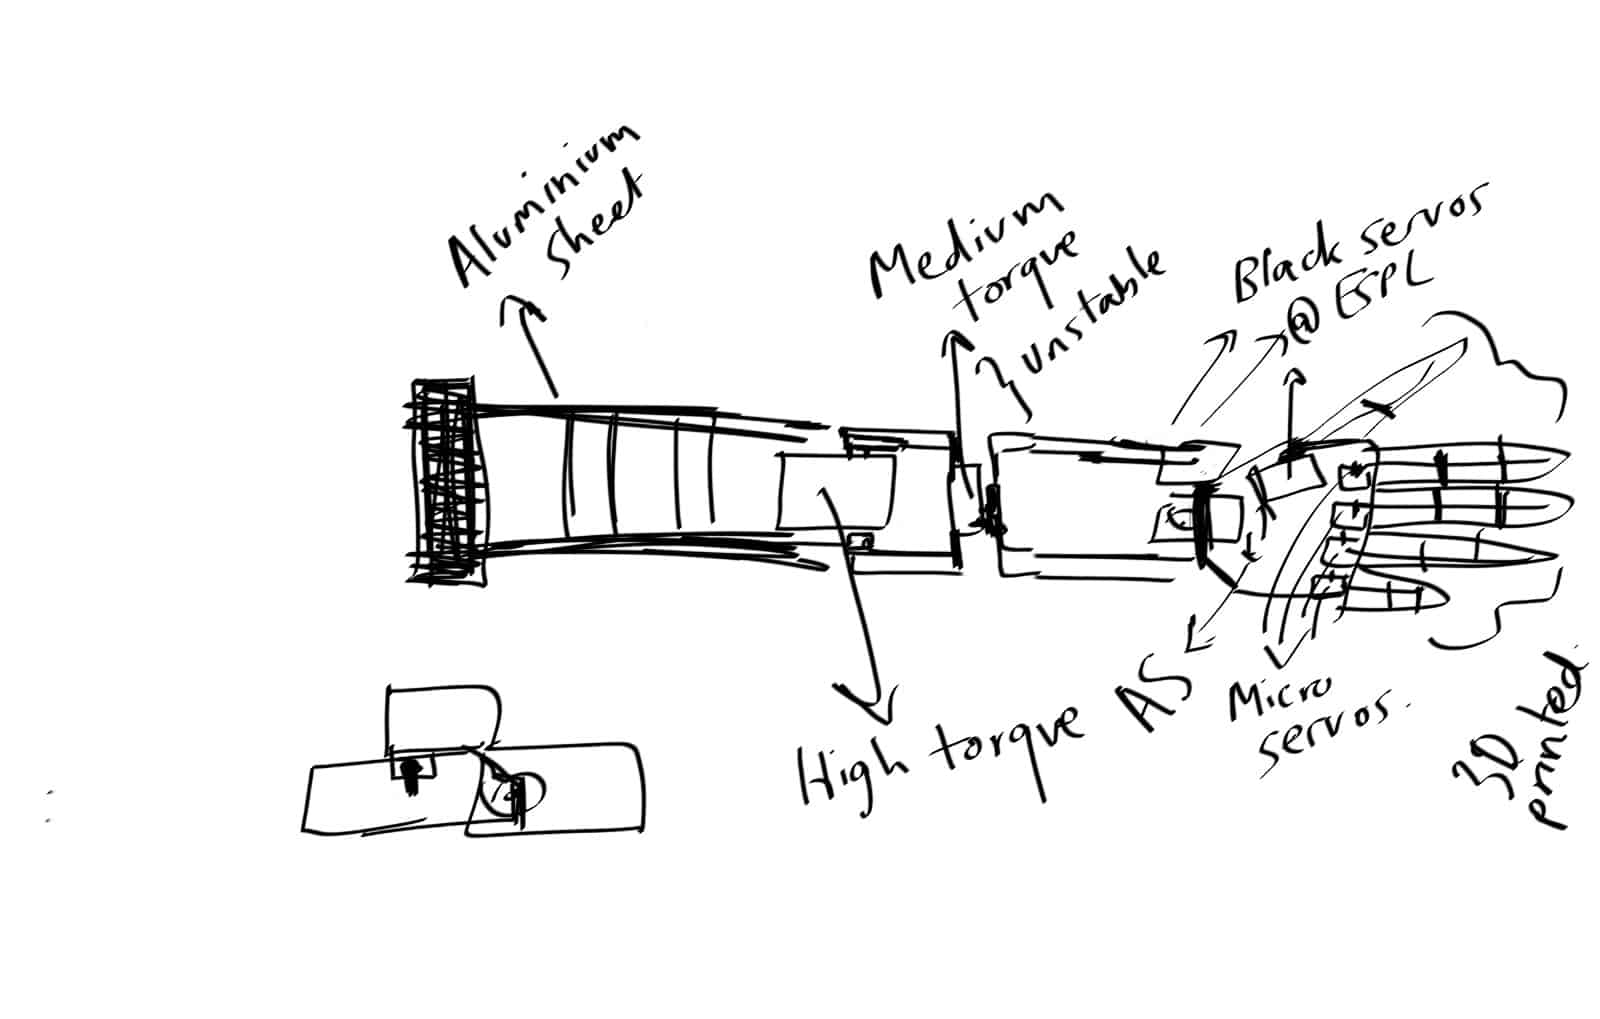 Aluminium
sheet
Medium
torque
unstable
Black servos
@ ESPL
High torque
AS
Micro
servos.
3D
printed